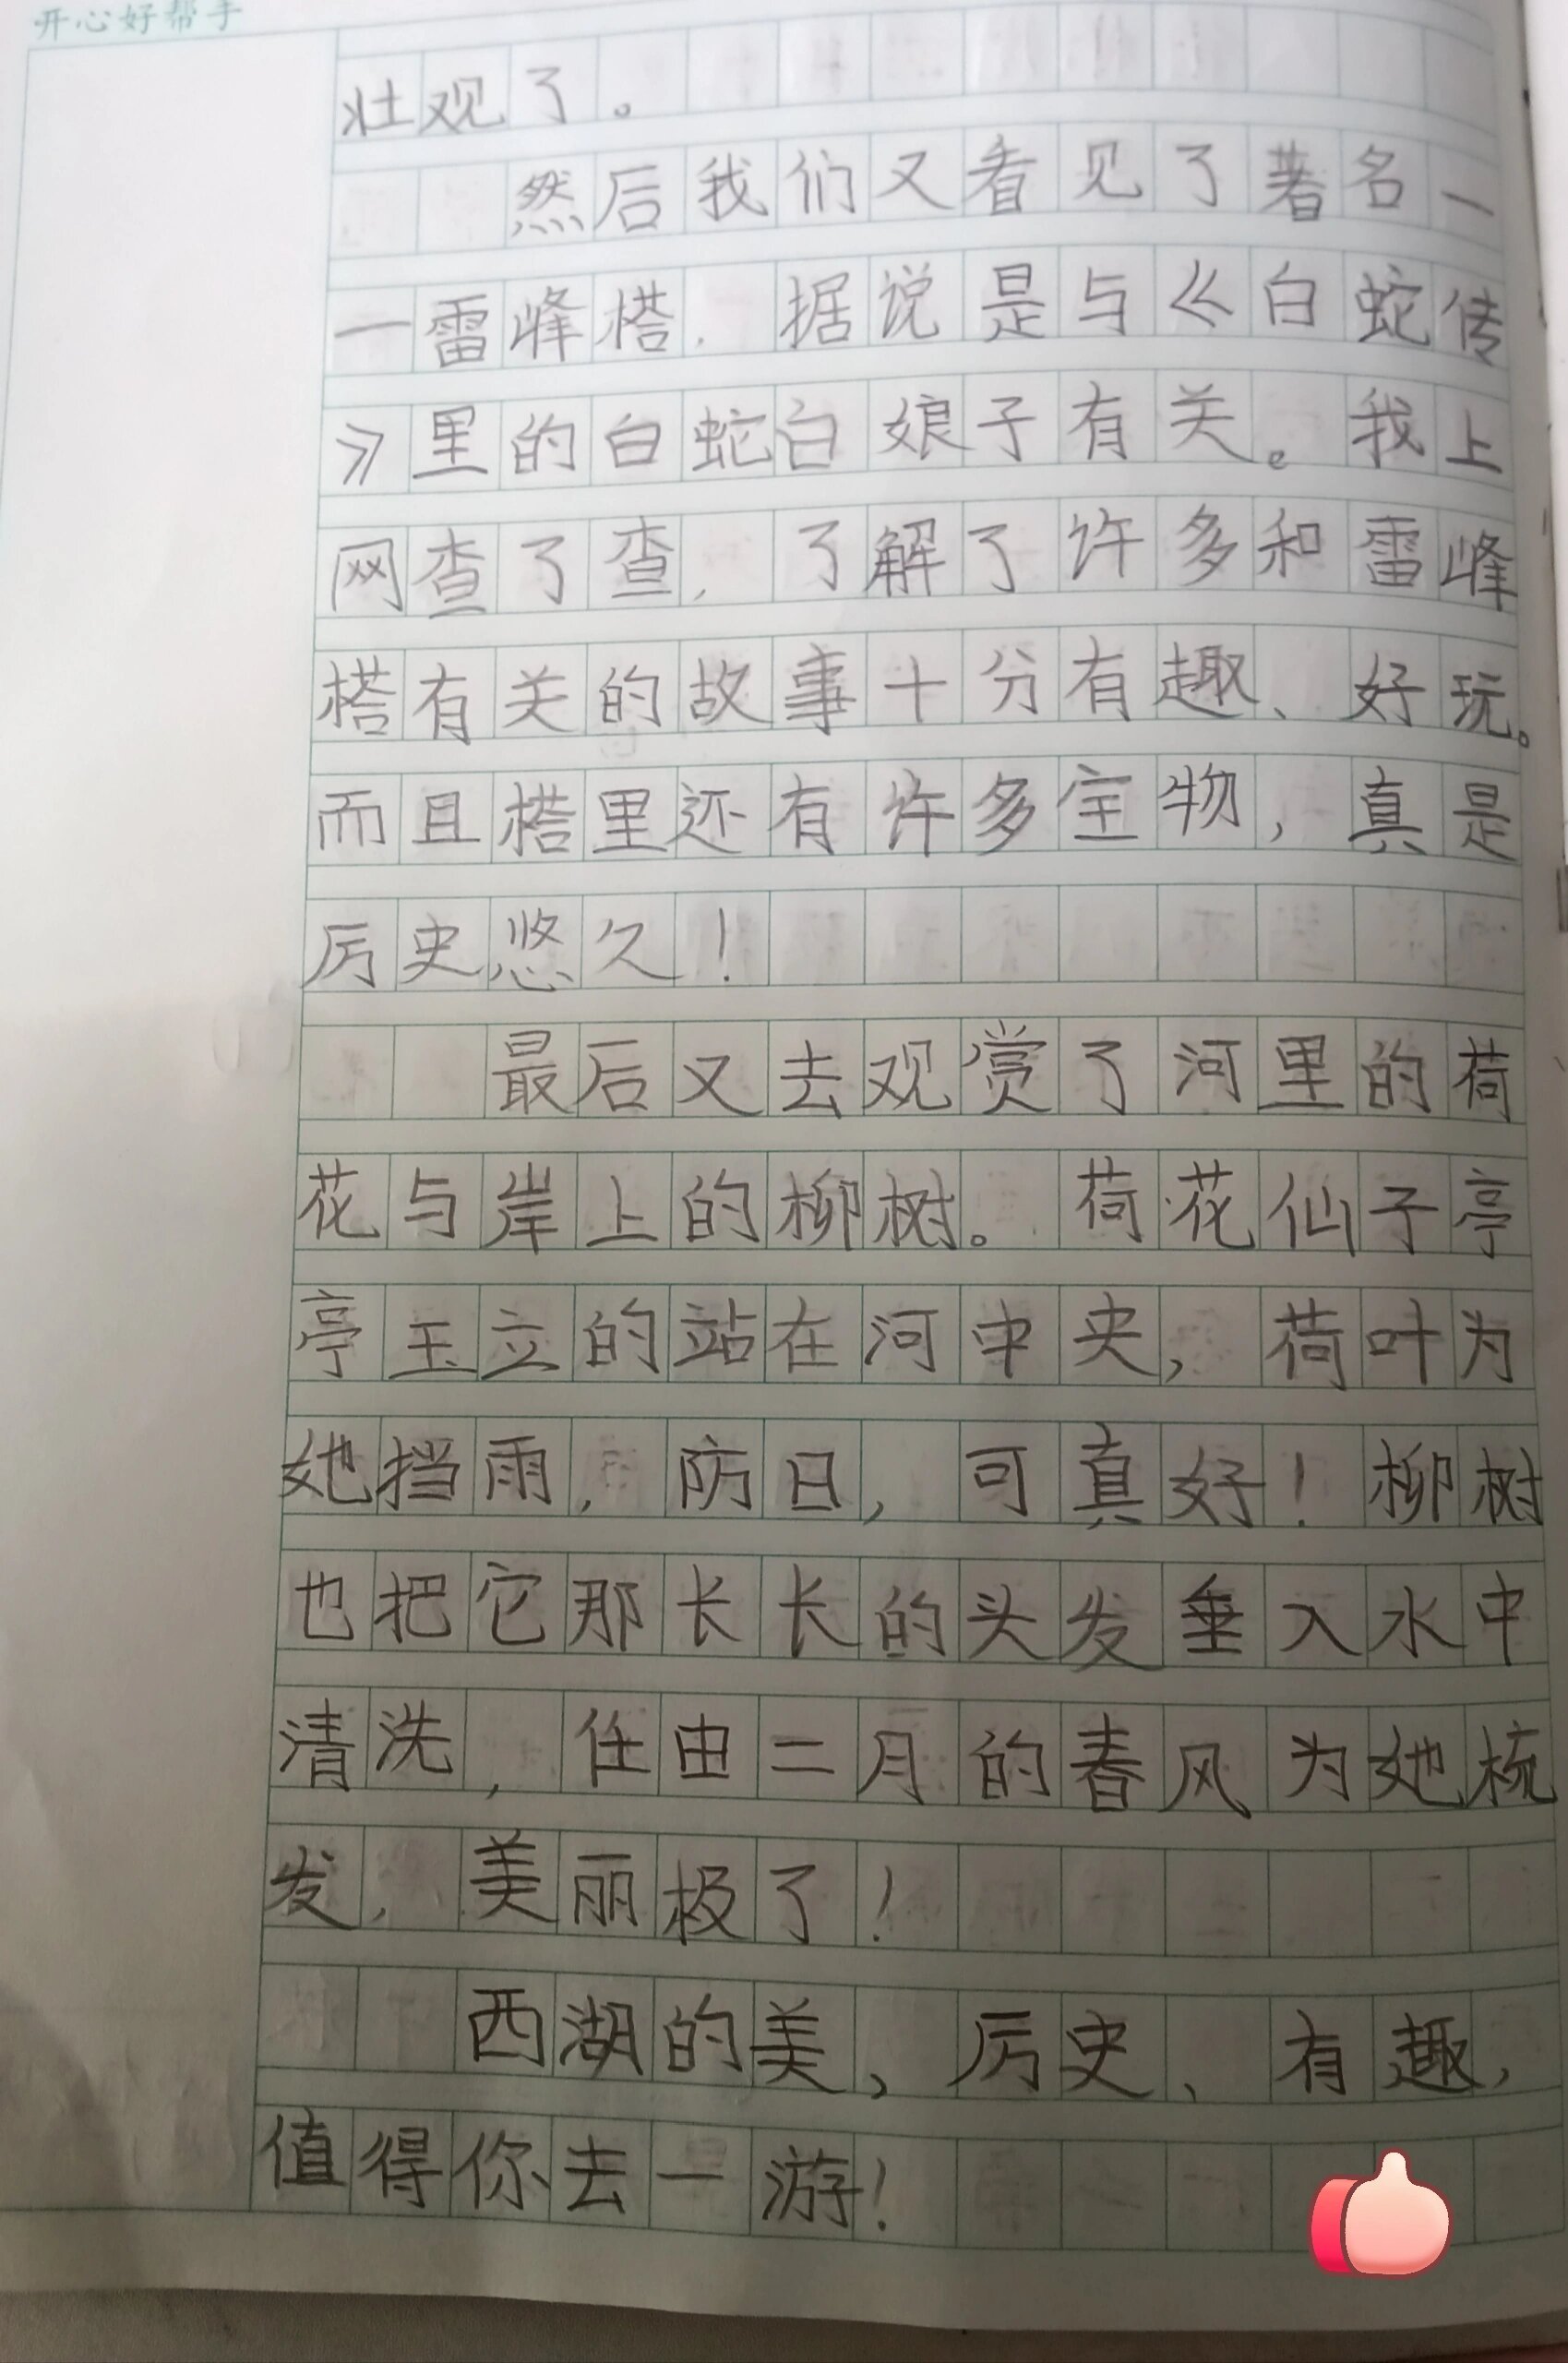 开心好帮手
壮观了。
然后我们又看见了著名一
一雷峰塔，据说是与《白蛇传
》里的白蛇白娘子有关。我上
网查了查，了解了许多和雷峰
塔有关的故事十分有趣、好玩。
而且塔里还有许多宝物，真是
厉史悠久！
最后又去观赏了河里的荷
花与岸上的柳树。荷花仙子亭
亭玉立的站在河中央，荷叶为
她挡雨，防日，可真好！柳树
也把它那长长的头发垂入水中
清洗，任由二月的春风为她梳
发，美丽极了！
西湖的美、厉史、有趣，
值得你去一游！